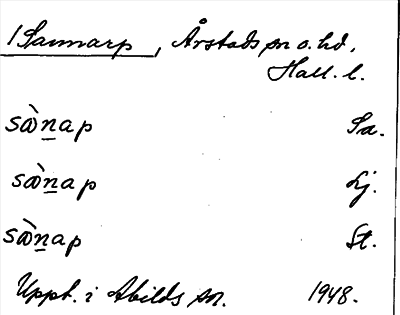 /Sannarp, Årstads sn o. hd,
Hall. l.
sæ̀n̲ap Sa.
sæ̀n̲ap Lj.
sæ̀n̲ap St.
Uppt. i Abilds sn. 1948.